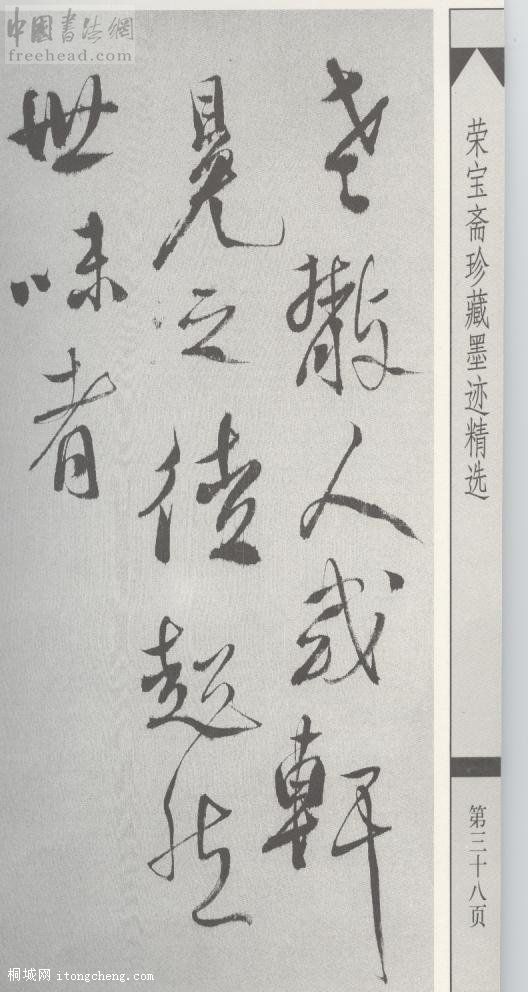 中國書法網
freehead.com
老散人或軒
晃之徒超然
世味者
荣宝斋珍藏墨迹精选
第三十八页
桐城网 itongcheng.com